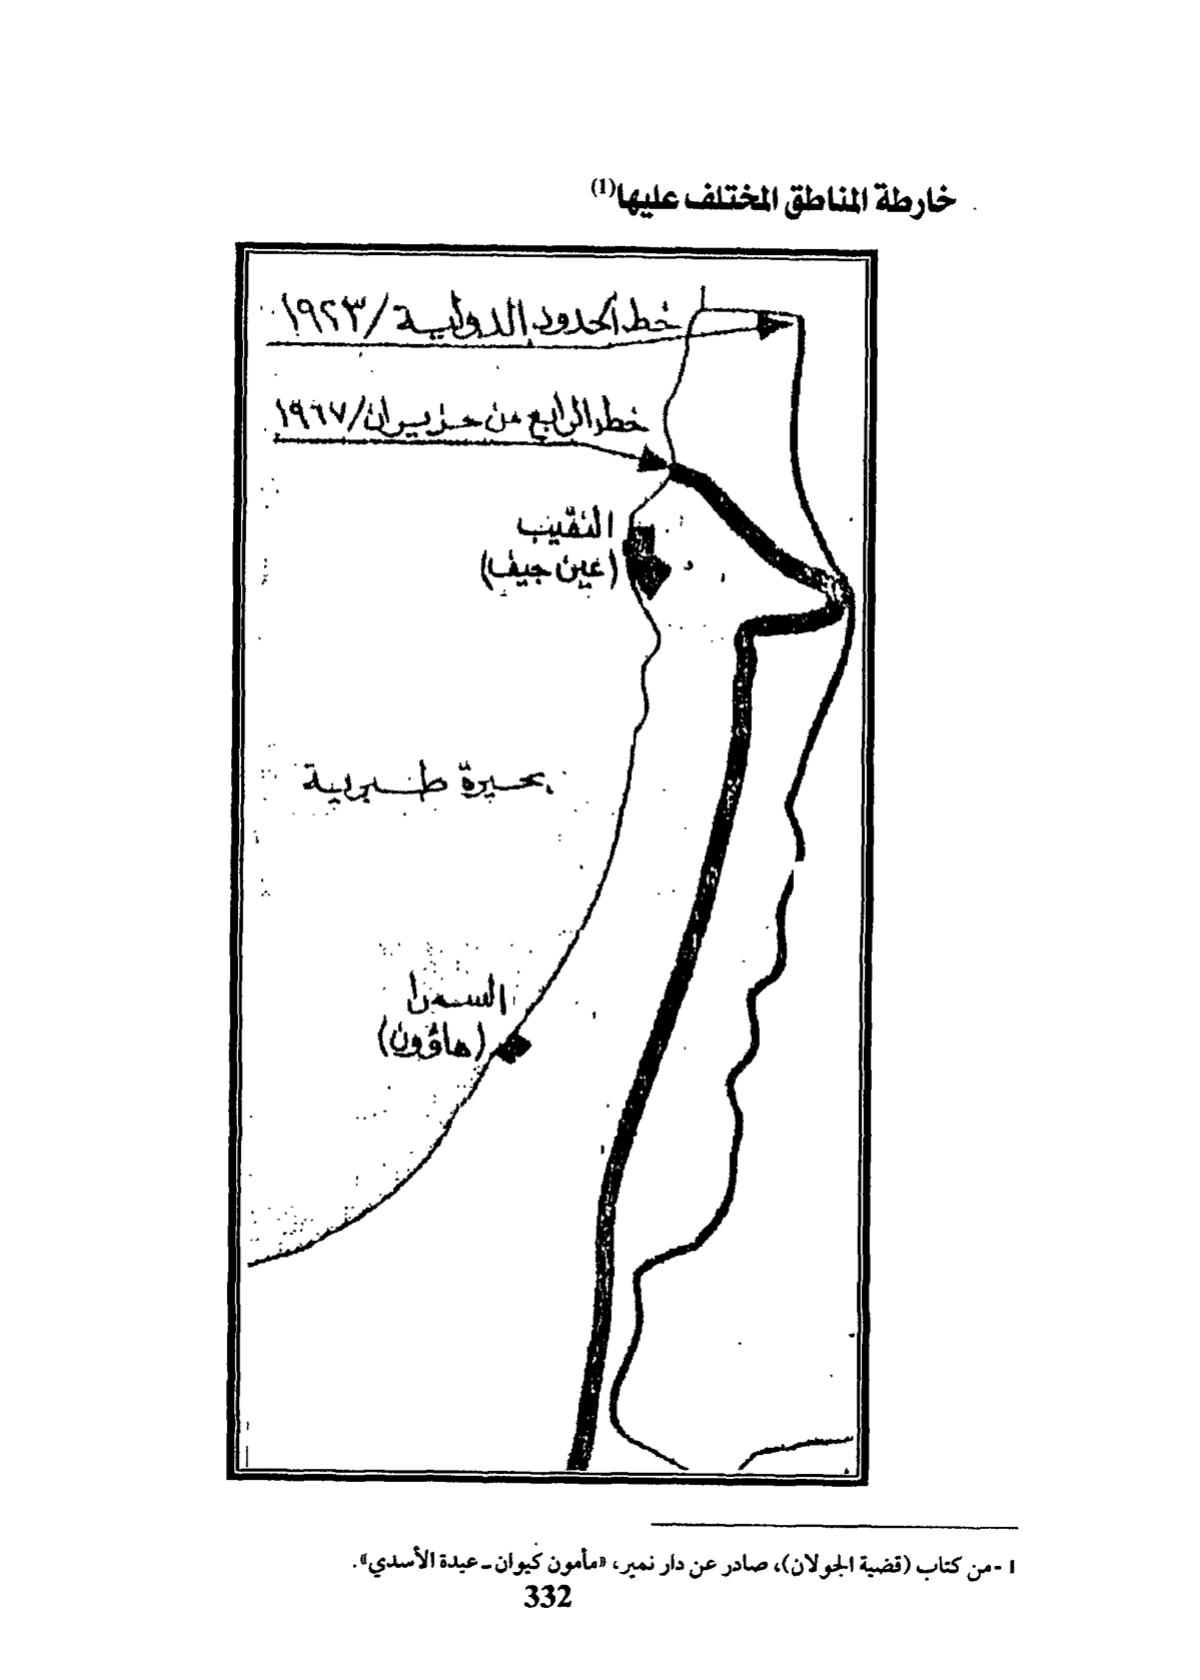 خارطة المناطق المختلف عليها(1)
خط الحدود الدولية /١٩٢٣
خط الرابع من حزيران/١٩٦٧
النقيب
(عين جيف)
بحيرة طبرية
السمرا
(هاؤون)
1 - من كتاب (قضية الجولان)، صادر عن دار نمير، «مأمون كيوان ـ عبدة الأسدي».
332